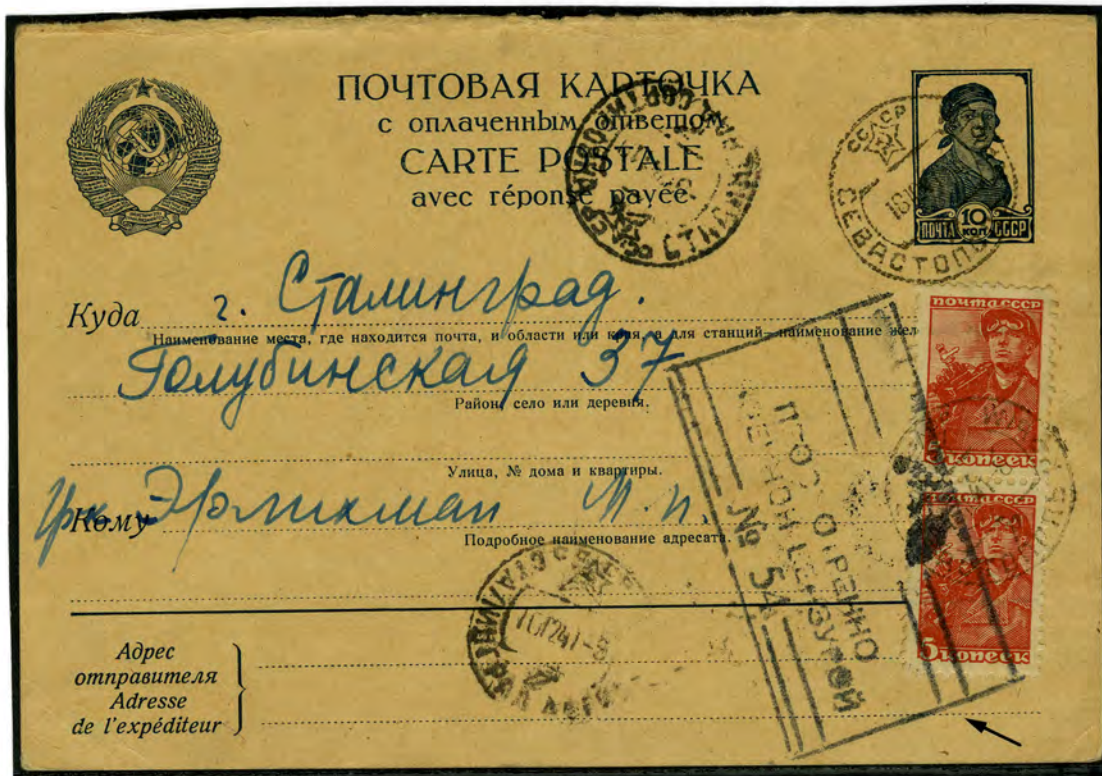 ПОЧТОВАЯ КАРТОЧКА
с оплаченным ответом
CARTE POSTALE
avec réponse payée
ПОЧТА 10 КОП СССР
СЕВАСТОПОЛЬ
Куда г. Сталинград.
Наименование места, где находится почта, и области или края, а для станций—наименование жел
Голубинская 37
Район, село или деревня.
Улица, № дома и квартиры.
Кому Эрлихман М. П.
Подробное наименование адресата.
почта СССР
5 копеек
почта СССР
5 копеек
ПРОСМОТРЕНО
ВОЕННОЙ ЦЕНЗУРОЙ
№ 54
Адрес
отправителя
Adresse
de l'expéditeur